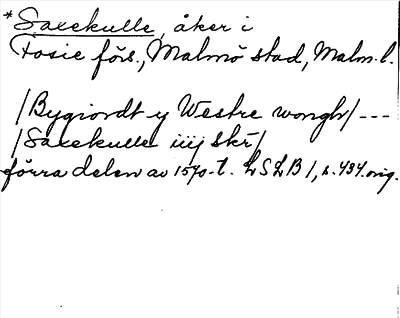 *Saxekulle, åker i
Fosie förs., Malmö stad, Malm. l.
/Bygiordt y Westre wongh/ ---
/Saxekulle iiij Skr/
förra delen av 1570-t. LSLB 1, s. 434. orig.